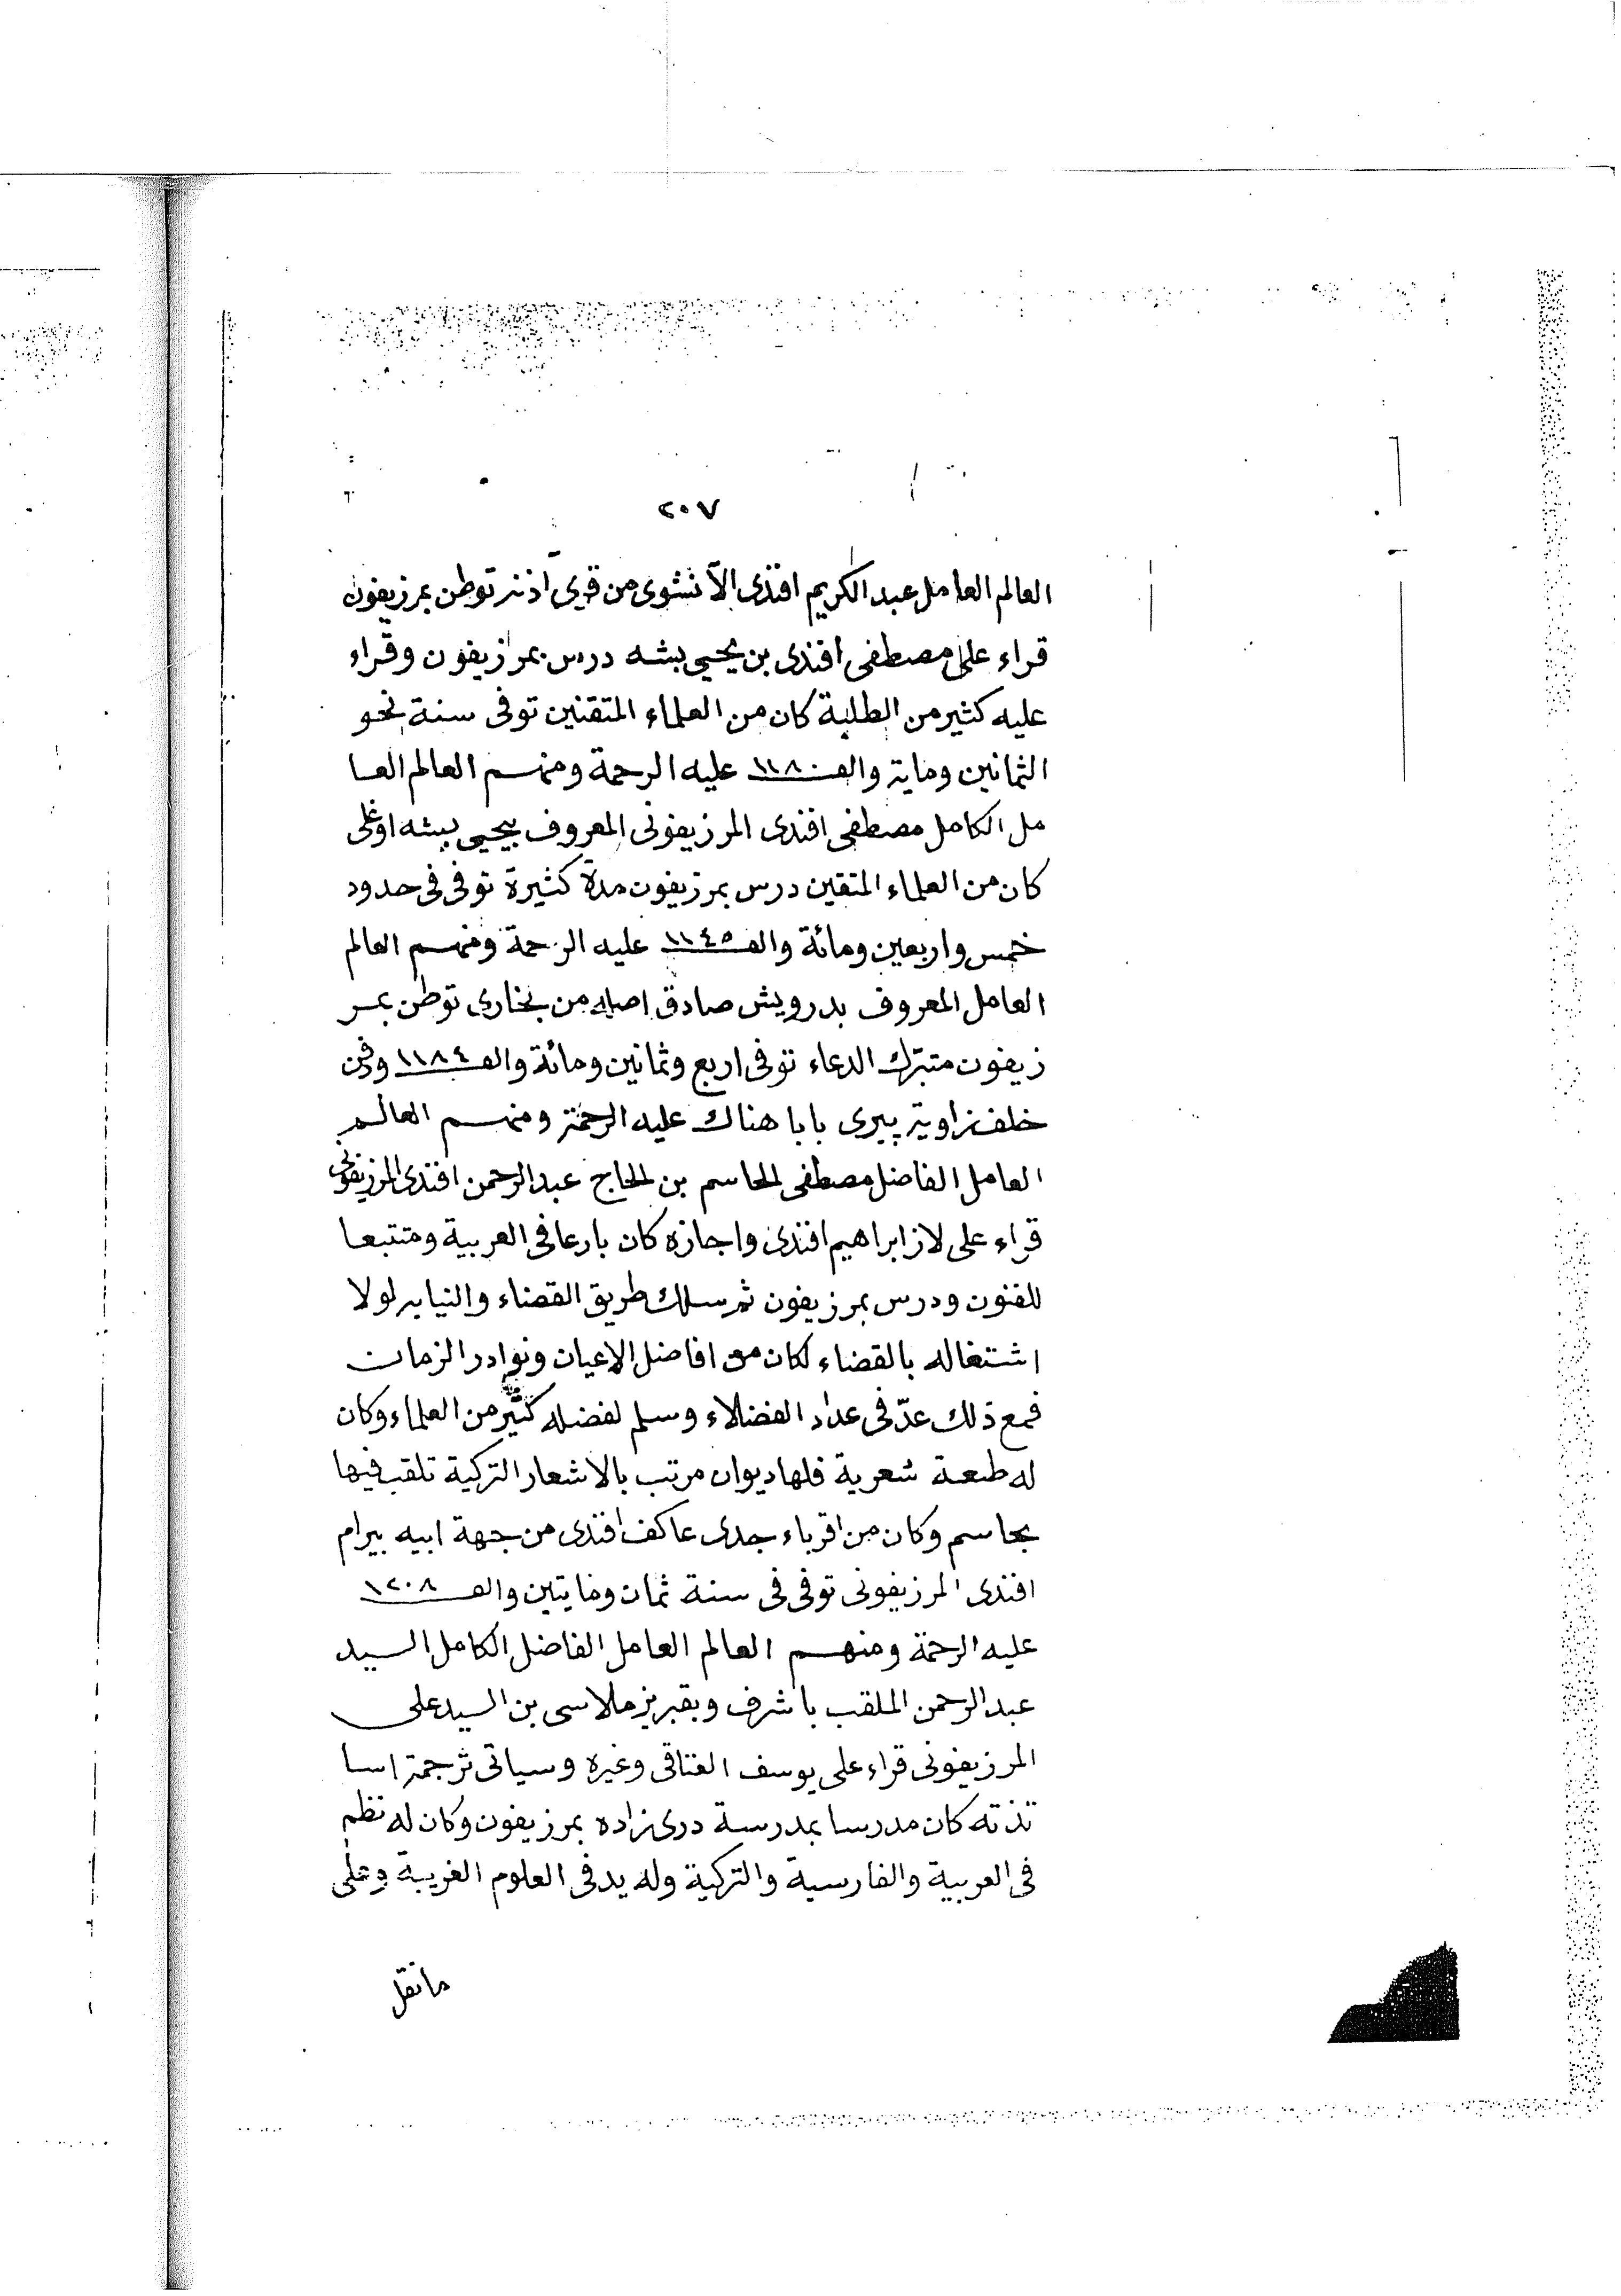 ٢٠٧
العالم العامل عبد الكريم افندى الآنشوى من قرى اذنه توطن بمرزيفون
قراء على مصطفى افندى بن يحيى بشه درس بمرازيفون وقراء
عليه كثير من الطلبة كان من العلماء المتقنين توفى سنة نحو
الثمانين وماية والف ١١٨٠ عليه الرحمة ومنهم العالم العا
مل الكامل مصطفى افندى المرزيفونى المعروف بيحيى بشه اوغلى
كان من العلماء المتقين درس بمرزيفون مدة كثيرة توفى فى حدود
خمس واربعين ومائة والف ١١٤٥ عليه الرحمة ومنهم العالم
العامل المعروف بدرويش صادق اصله من بخارى توطن بمر
زيفون متبرك الدعاء توفى اربع وثمانين ومائة والف ١١٨٤ ودفن
خلف زاوية پيرى بابا هناك عليه الرحمة ومنهم العالم
العامل الفاضل مصطفى الحاسم بن الحاج عبد الرحمن افندى المرزيفونى
قراء على لاز ابراهيم افندى واجازه كان بارعا فى العربية ومتتبعا
للفنون ودرس بمرزيفون ثم سلك طريق القضاء والنيابه لولا
اشتغاله بالقضاء لكان من افاضل الاعيان ونوادر الزمان
فمع ذلك عدّ فى عداد الفضلاء وسلم لفضله كثير من العلماء وكان
له طبعة شعرية فلها ديوان مرتب بالاشعار التركية تلقب فيها
بحاسم وكان من اقرباء جدى عاكف افندى من جهة ابيه بيرام
افندى المرزيفونى توفى فى سنة ثمان ومايتين والف ١٢٠٨
عليه الرحمة ومنهم العالم العامل الفاضل الكامل السيد
عبد الرحمن الملقب باشرف وبقبريز ملاسى بن السيد على
المرزيفونى قراء على يوسف الفتاقى وغيره وسياتى ترجمة اسا
تذته كان مدرسا بمدرسة درى زاده بمرزيفون وكان له نظم
فى العربية والفارسية والتركية وله يد فى العلوم الغريبة وعلى
ما نقل